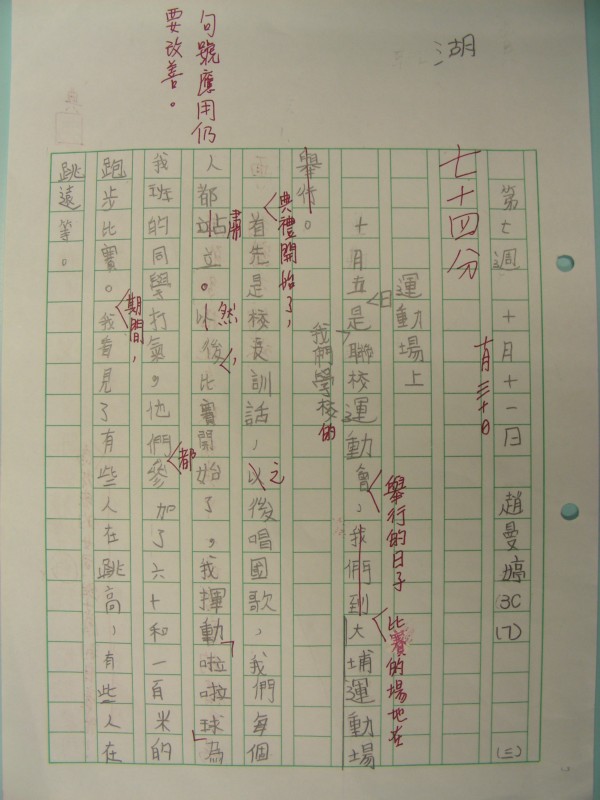 湖
句號應用仍
要改善。
第七週 十月十一日 趙曼 3C (7) (三)
七十四分
十月三十日
運動場上
十月五是聯校運動會，我們到大埔運動場
日
我們學校的
舉行的日子
比賽的場地在
舉行。
典禮開始了，
首先是校長訓話，以後唱國歌，我們每個
之
人都站立。以後比賽開始了，我揮動啦啦球為
肅
然
，
我班的同學打氣，他們參加了六十和一百米的
都
跑步比賽。我看見了有些人在跳高，有些人在
期間，
跳遠等。